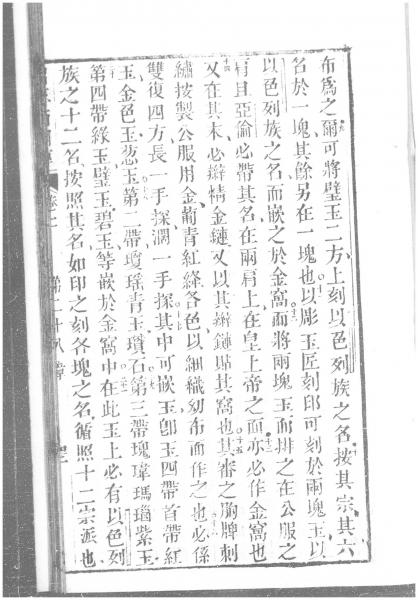 布爲之爾可將璧玉二方上刻以色列族之名按其宗其六
名於一塊其餘另在一塊也以彫玉匠刻印可刻於兩塊玉以
以色列族之名而嵌之於金窩而將兩塊玉而排之在公服之
肩且亞倫必帶其名在兩肩上在皇上帝之面亦必作金窩也
又在其末必辮精金鏈又以其辮鏈貼其窩也其審之胸牌刺
繡按製公服用金葡青紅絳各色以細織紉布而作之也必係
雙復四方長一手探濶一手探其中可嵌玉卽玉四帶首帶紅
玉金色玉葱玉第二帶瓊瑶青玉瓚石第三帶瑰瑋瑪瑙紫玉
第四帶綠玉璧玉碧玉等嵌於金窩中在此玉上必有以色列
族之十二名按照其名如印之刻各塊之名循照十二宗派也
第二十八章